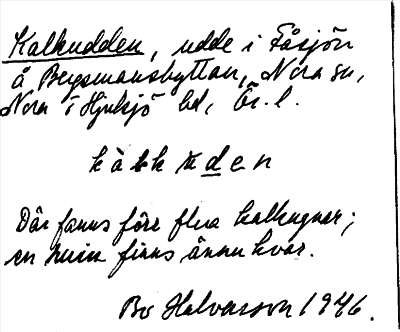 Kalkudden, udde i Fåsjön
å Bergsmanshyttan, Nora sn,
Nora i Hjulsjö bd, Ör. l.
kàlkùden
Där fanns förr flera kalkugnar;
en ruin finns ännu kvar.
Bo Halvarson 1946.